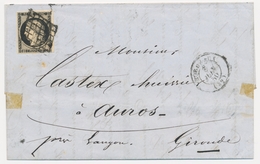 Monsieur
Castex huissier
à Auros
par Langon Gironde